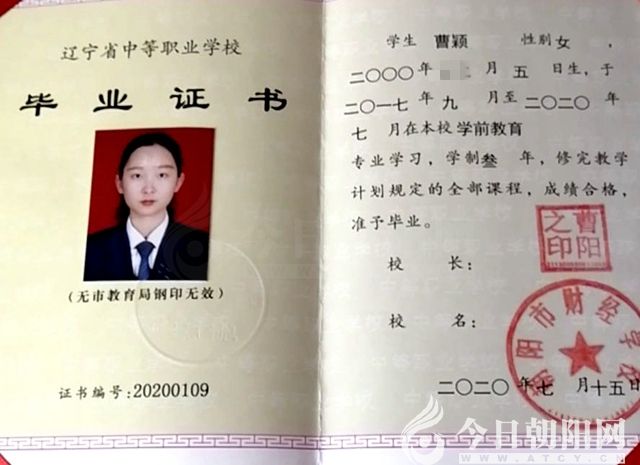 辽宁省中等职业学校
毕业证书
(无市教育局钢印无效)
证书编号:20200109
学生 曹颖 性别女,
二〇〇〇年 月五日生,于
二〇一七年九月至二〇二〇年
七月在本校学前教育
专业学习,学制叁年,修完教学
计划规定的全部课程,成绩合格,
准予毕业。
校长:
曹阳之印
校名:
朝阳市财经学校
二〇二〇年七月十五日
今日朝阳网
WWW.ATCY.CN